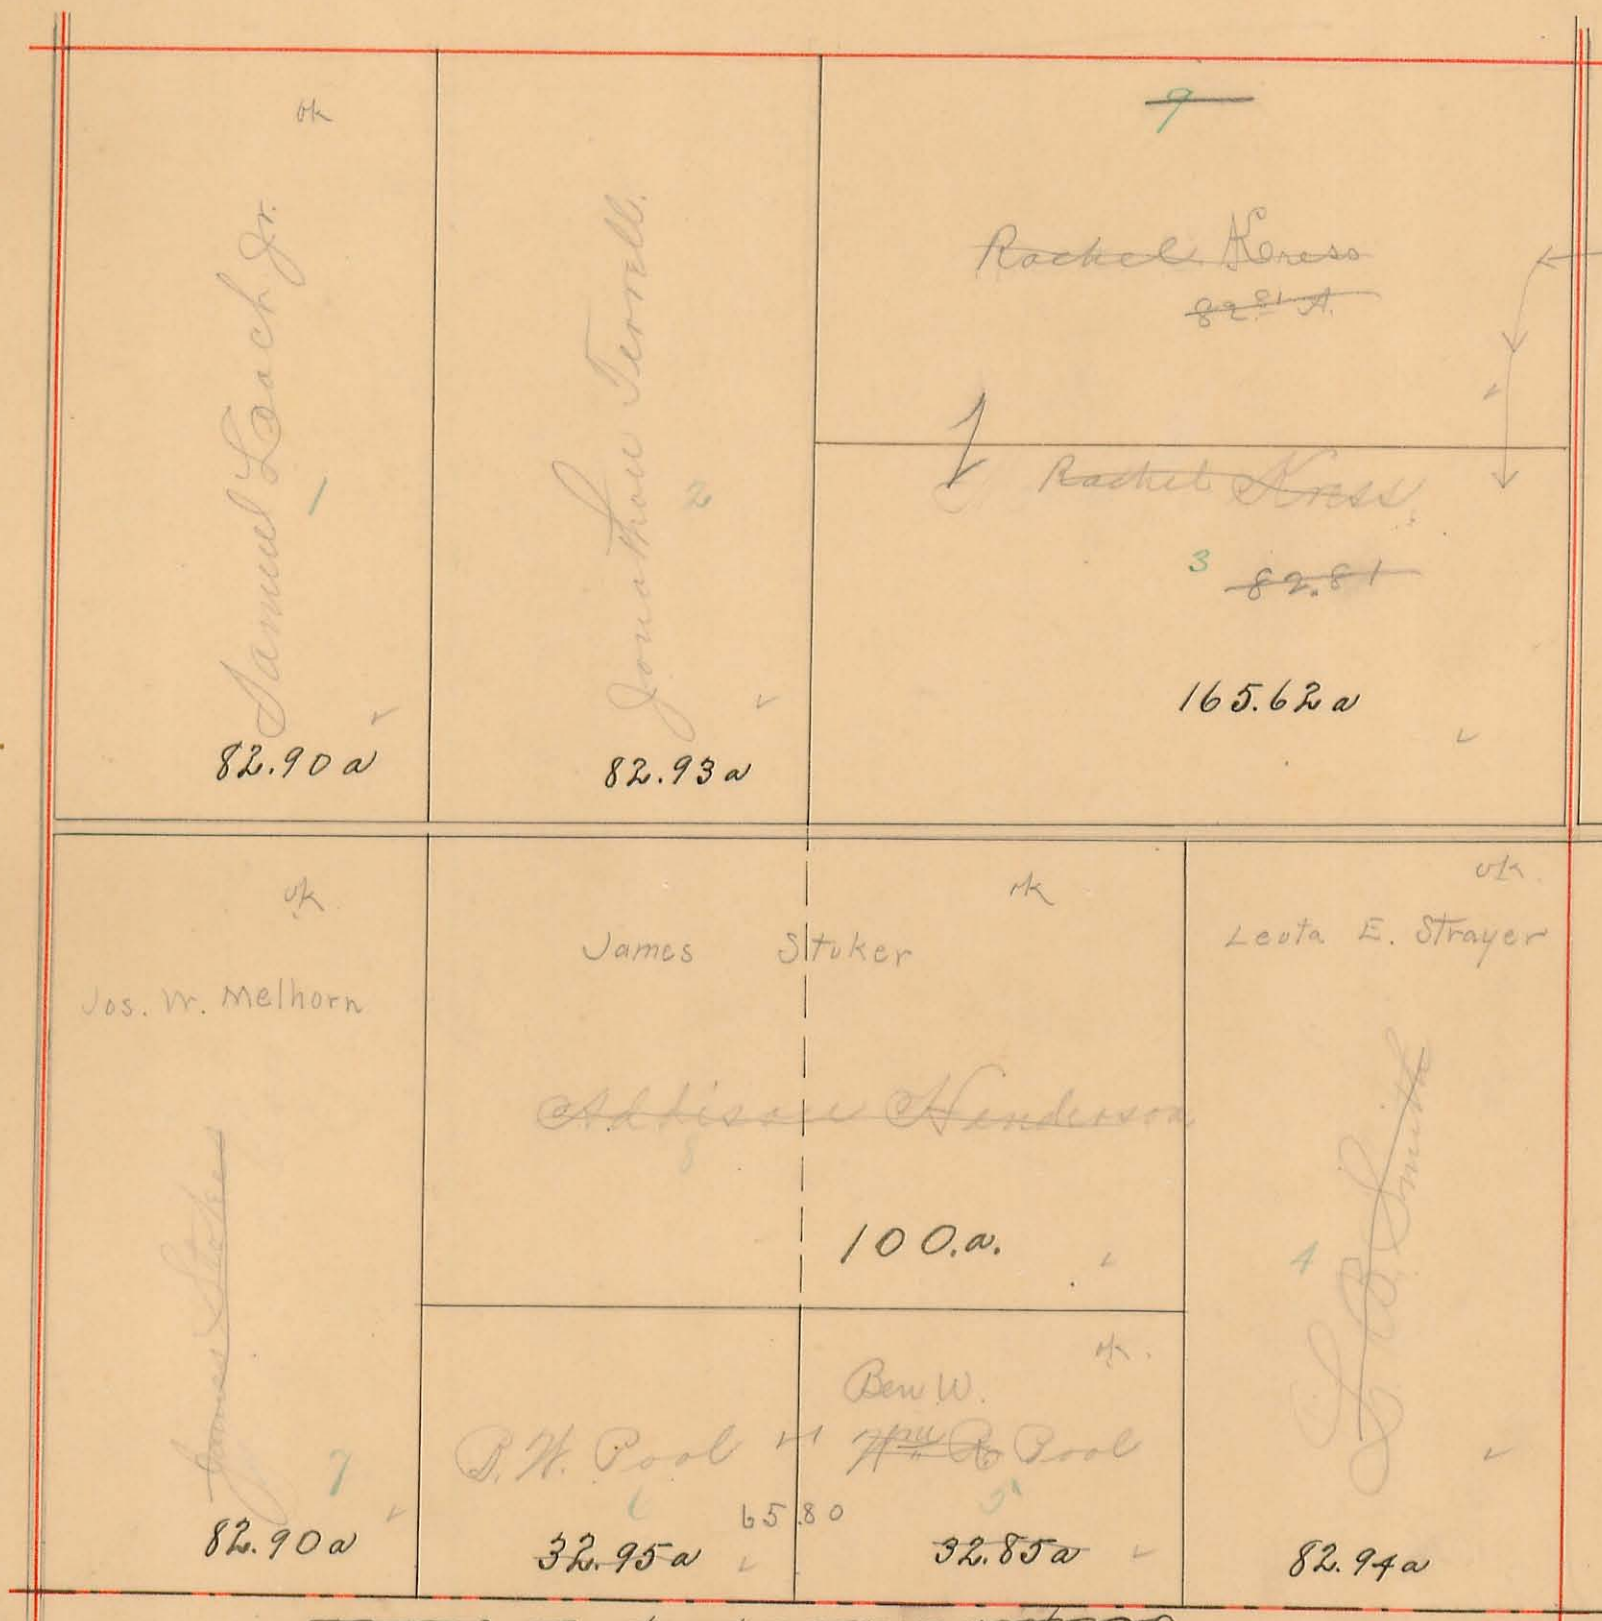 ok
Samuel Leach Jr.
1
82.90 a
Jonathan Terrell.
2
82.93 a
9
Rachel Kress
82.81 A.
Rachel Kress
3
82.81
165.62 a
ok
Jos. W. Melhorn
James Stoker
7
82.90 a
ok
James Stoker
Addison Henderson
8
100.a.
B. W. Pool
6
32.95 a
65.80
ok.
Ben W.
Wm R Pool
5
32.85 a
ok.
Leota E. Strayer
L B Smith
4
82.94 a